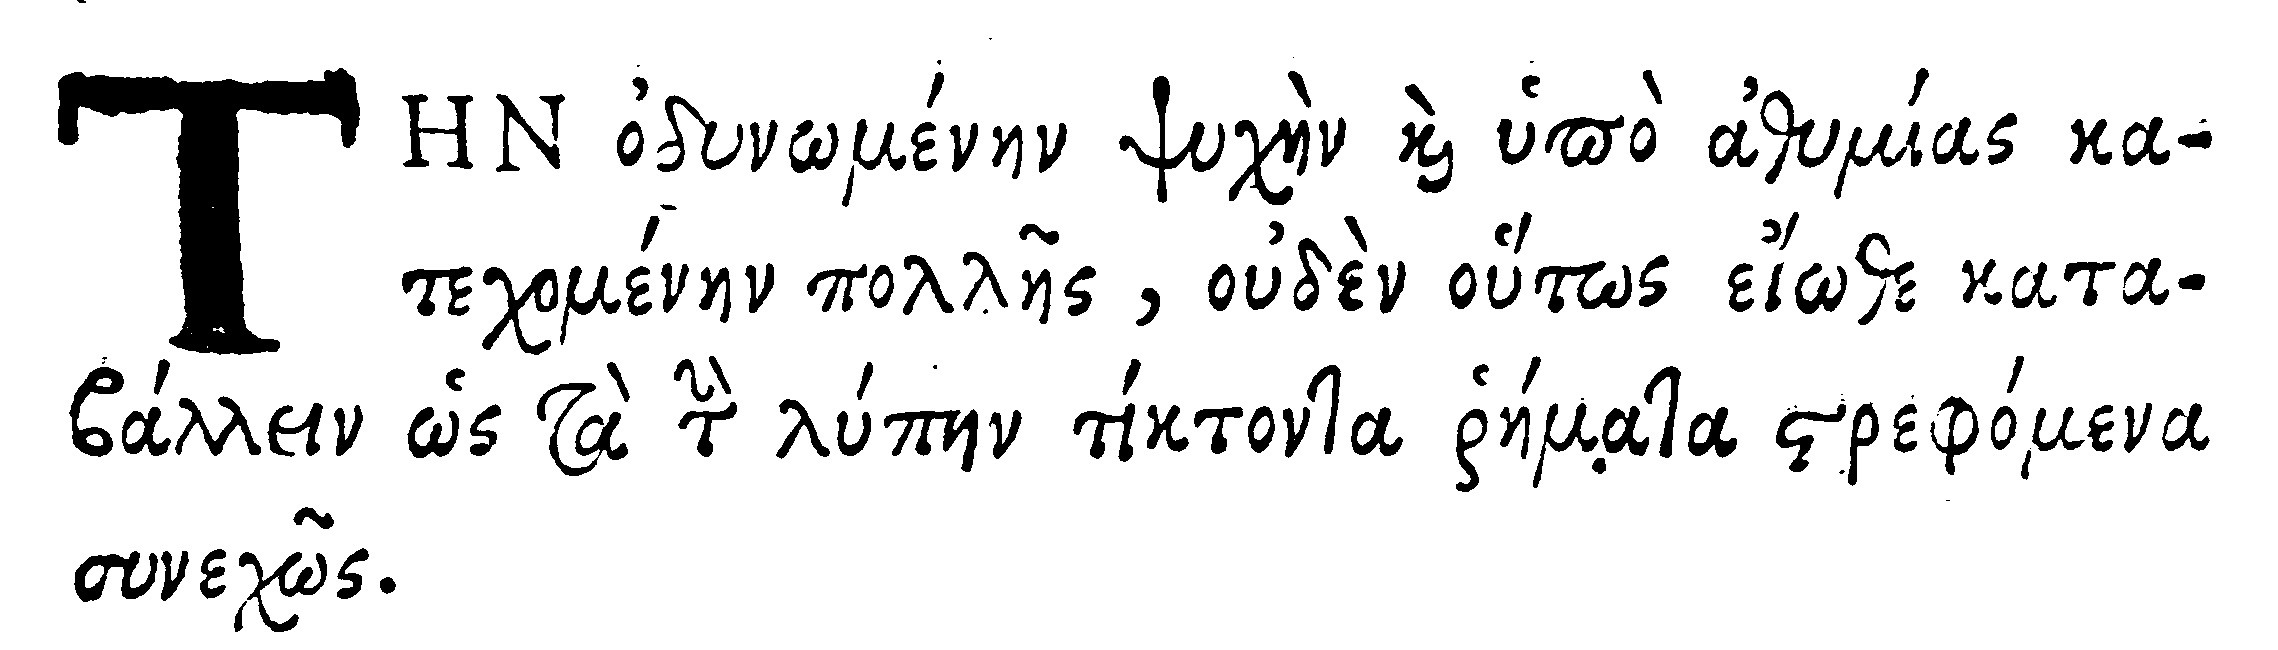 ΤΗΝ ὀδυνωμένην ψυχὴν ϗ ὑπὸ ἀθυμίας κα-
τεχομένην πολλῆς, οὐδὲν οὕτως εἴωθε κατα-
βάλλειν ὡς τὰ τὴν λύπην τίκτοντα ῥήματα στρεφόμενα
συνεχῶς.